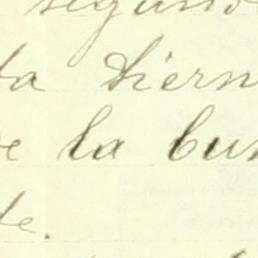 segund
ta tiern
e la bu
te.